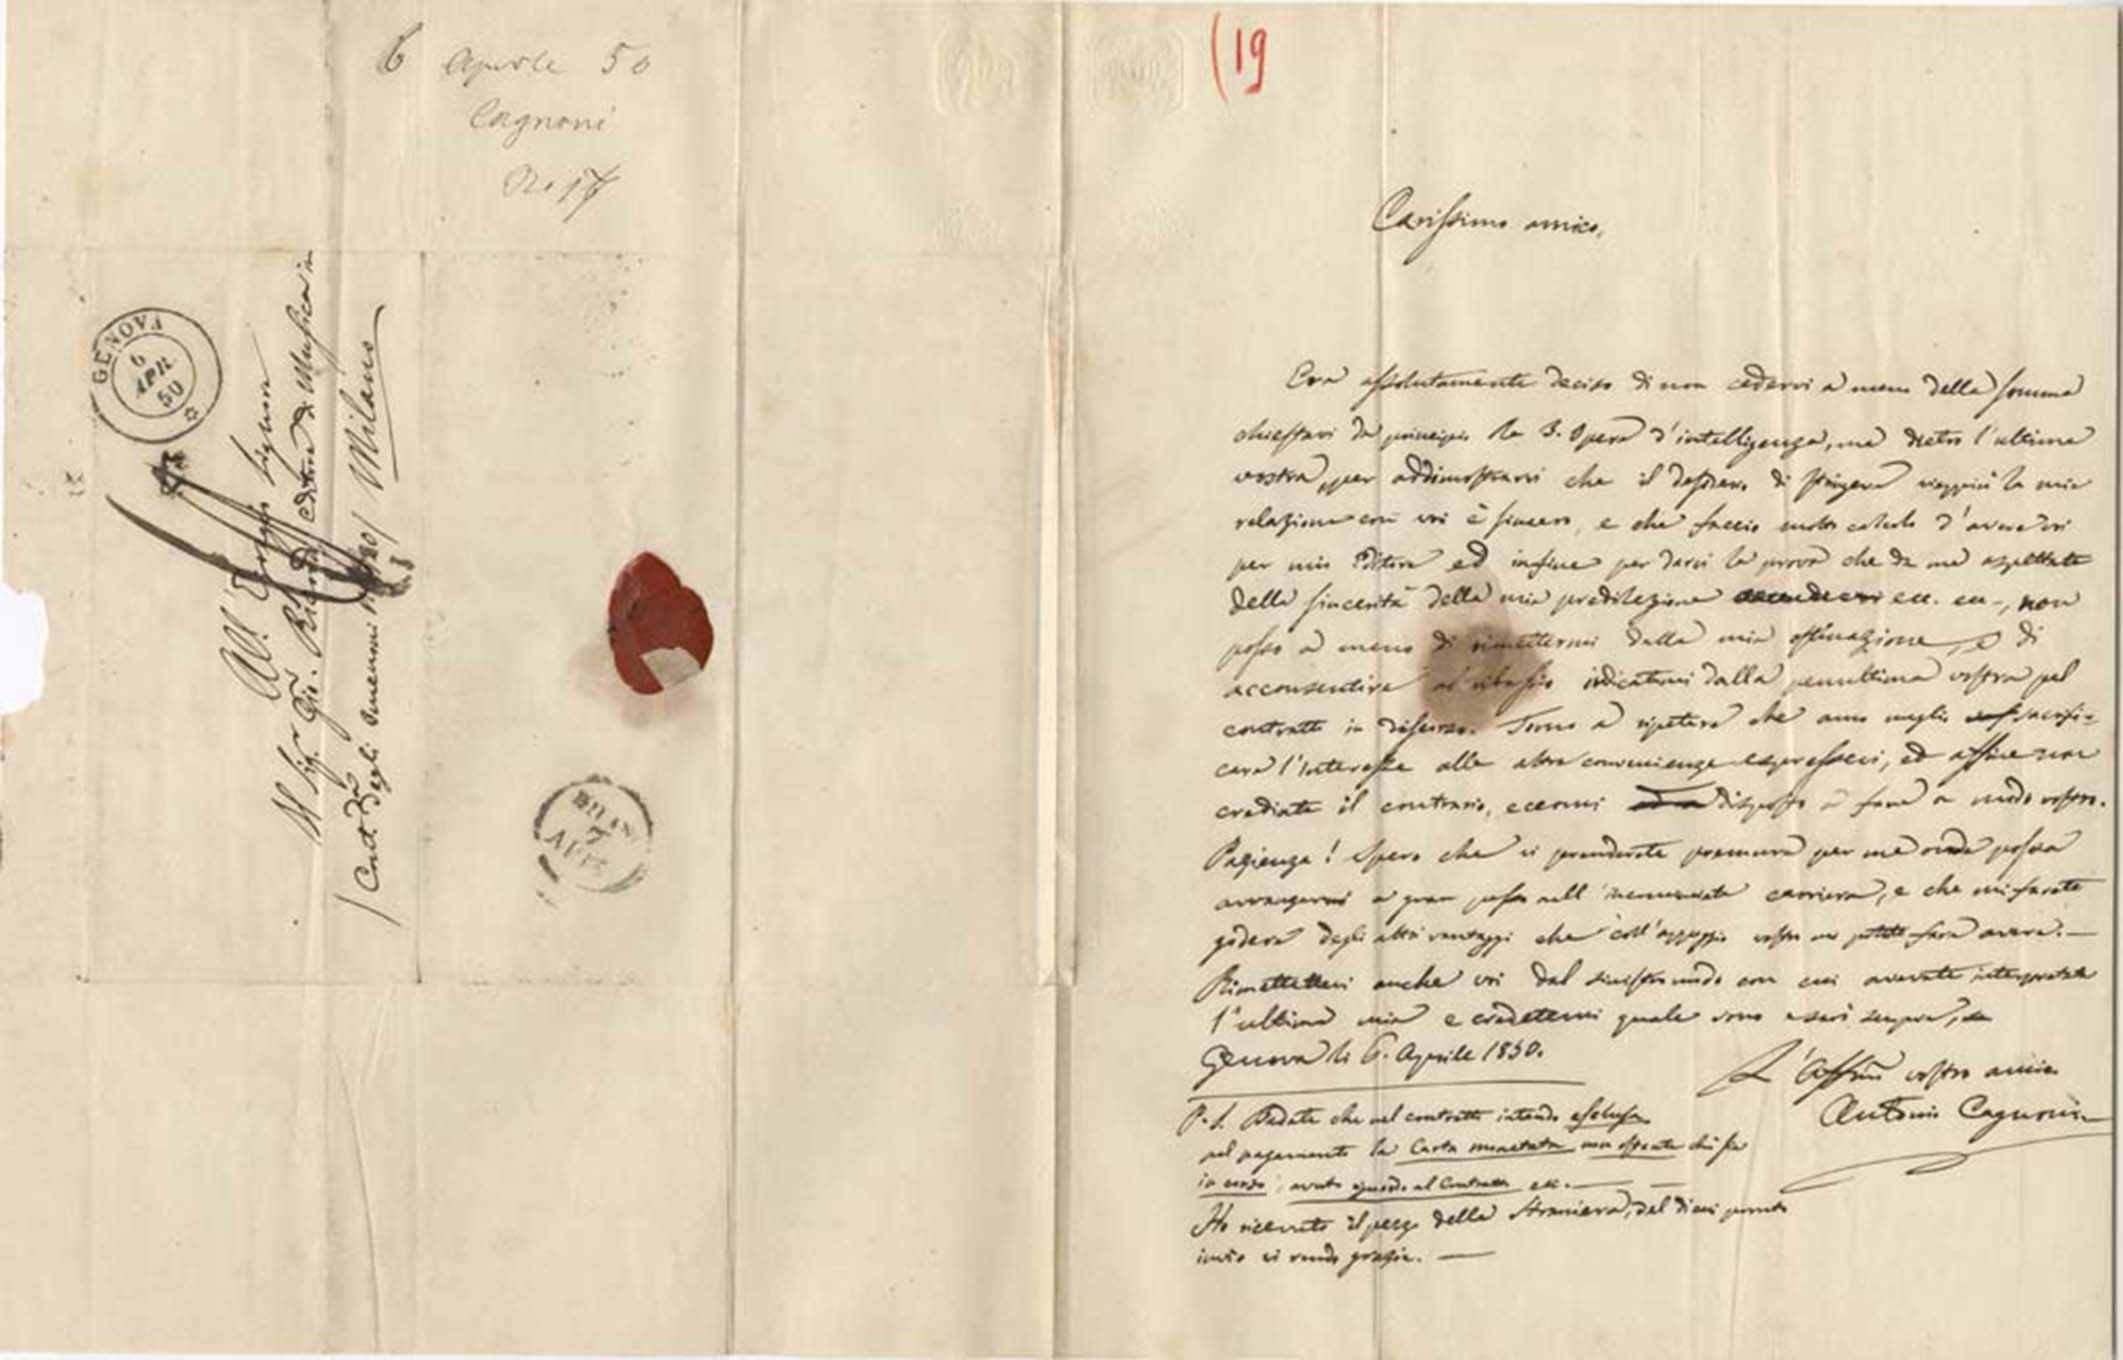 6 Aprile 50
Cagnoni
No 17
GENOVA
6
APR.
50
All' Egregio Signore
Il Sig.r Gio. Ricordi Editore di Musica in
Contr.da degli Omenoni N. 1720 / Milano
7
(19
Carissimo amico,
Era assolutamente deciso di non cedervi a meno della somma
chiestavi da principio la 3. Opera d'intelligenza, ma dietro l'ultima
vostra, per addimostrarvi che il desiderio di stringere viappiù la mia
relazione con voi è sincero, e che faccio molto calcolo d'avere voi
per mio Editore ed infine per darvi la prova che da me aspettate
della sincerità della mia predilezione ecc. ecc., non
posso a meno di rimettermi dalla mia ostinazione, e di
acconsentire al ribasso indicatomi dalla penultima vostra pel
contratto in discorso. Torno a ripetere che amo meglio sacrifi-
care l'interesse alle altre convenienze espressevi, ed affine non
crediate il contrario, eccomi disposto a fare a modo vostro.
Pazienza! Spero che vi prenderete premura per me onde possa
avvanzarmi a gran passo nell'incominciata carriera, e che mi farete
godere degli altri vantaggi che coll'appoggio vostro mi potete fare avere. —
Rimettetevi anche voi dal sinistro modo con cui avevate interpretata
l'ultima mia e credetemi quale sono e sarò sempre,
Genova li 6. Aprile 1850.
L'Aff.mo vostro amico
Antonio Cagnoni
P.S. Badate che nel contratto intendo esclusa
nel pagamento la Carta monetata non ostante chi sia
in corso, avuto riguardo al Contratto ecc. —
Ho ricevuto il pezzo della Straniera, del di cui pronto
invio vi rendo grazie. —